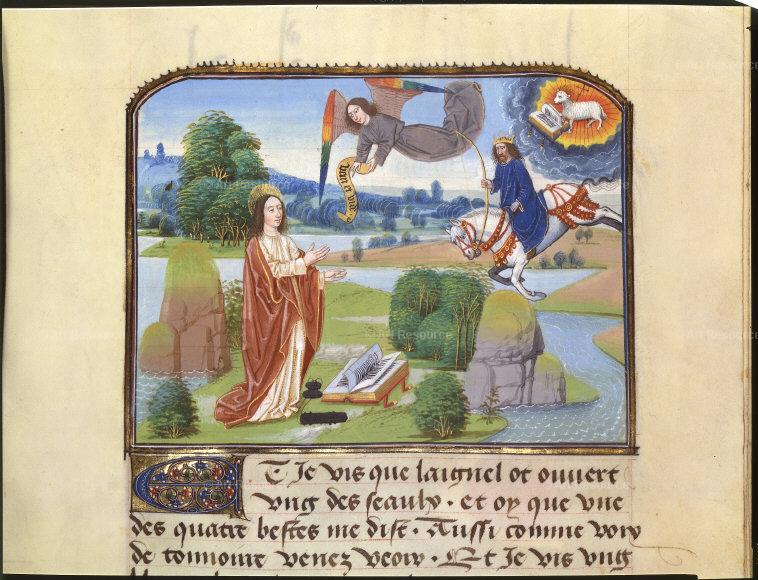 veni et vide
Et Je vis que laignel ot ouuert
vng des seaulx. et oy que vne
des quatre bestes me dist. Aussi comme voix
de tonnoire venez veoir. Et Je vis vng
Art Resource